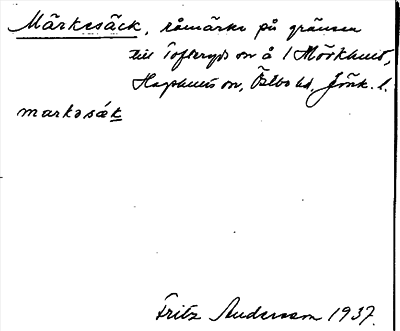 Märkesäck, råmärke på gränsen
till Tofteryds sn å 1 Mörkhult,
Hagshults sn, Östbo hd, Jönk. l.
markəsäk
Fritz Andersson 1937.